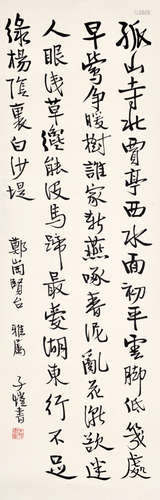 孤山寺北賈亭西水面初平雲脚低幾處
早鶯爭暖樹誰家新燕啄春泥亂花漸欲迷
人眼浅草纔能没馬蹄最愛湖東行不足
綠楊陰裏白沙堤
鄭崗賢台 雅屬 子愷書